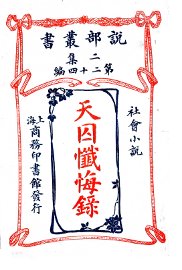 說部叢書
二集
第二十四編
社會小說
天囚懺悔錄
上海商務印書館發行